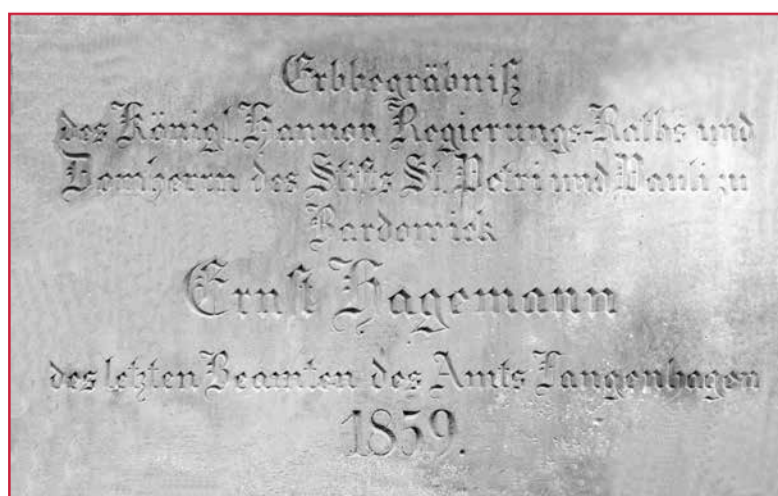 Erbbegräbniß
des Königl. Hannov. Regierungs-Raths und
Domherrn des Stifts St. Petri und Pauli zu
Bardowiek
Ernst Hagemann
des letzten Beamten des Amts Langenhagen
1859.